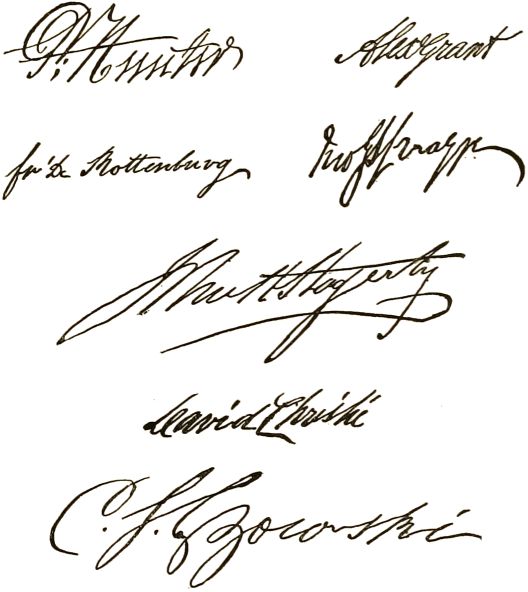 P. Hunter Alex Grant
fr's De Rottenburg
Hagerty
David Christie
C. S. Gzowski